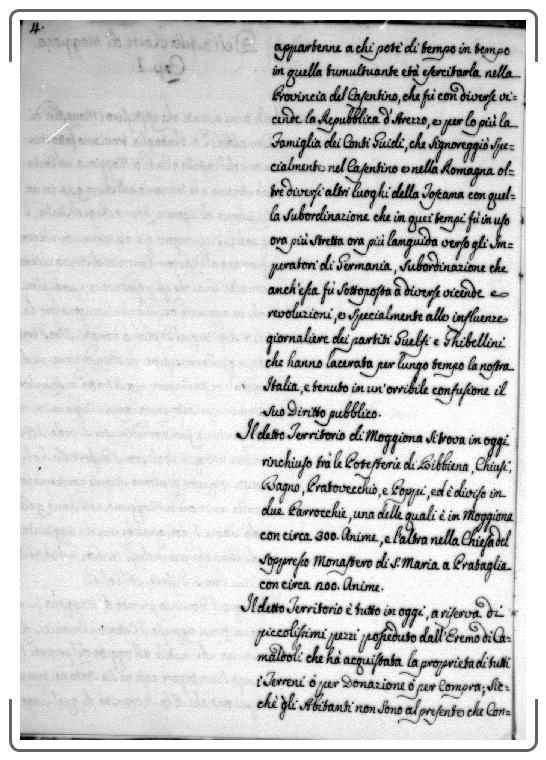 4.
appartenne a chi potè di tempo in tempo
in quella tumultuante età esercitarla nella
Provincia del Casentino, che fù con diverse vi=
cende la Repubblica d'Arezzo, e per lo più la
Famiglia dei Conti Guidi, che signoreggiò spe=
cialmente nel Casentino e nella Romagna ol=
tre diversi altri luoghi della Toscana con quel=
la subordinazione che in quei tempi fù in uso
ora più stretta ora più languida verso gli Im=
peratori di Germania, subordinazione che
anch'essa fù sottoposta a diverse vicende e
revoluzioni, e specialmente alle influenze
giornaliere dei partiti Guelfi e Ghibellini
che hanno lacerata per lungo tempo la nostra
Italia, e tenuto in un'orribile confusione il
suo Diritto pubblico.
Il detto Territorio di Moggiona si trova in oggi
rinchiuso trà le Potesterie di Bibbiena, Chiusi,
Bagno, Pratovecchio, e Poppi, ed è diviso in
due Parrocchie, una delle quali è in Moggiona
con circa 300. Anime, e l'altra nella Chiesa del
soppresso Monastero di S. Maria a Prataglia
con circa 200. Anime.
Il detto Territorio è tutto in oggi, a riserva di
piccolissimi pezzi posseduto dall'Eremo di Ca=
maldoli che hà acquistata la proprietà di tutti
i Terreni ò per Donazione ò per Compra; Sic=
chè gli Abitanti non sono al presente che Con=